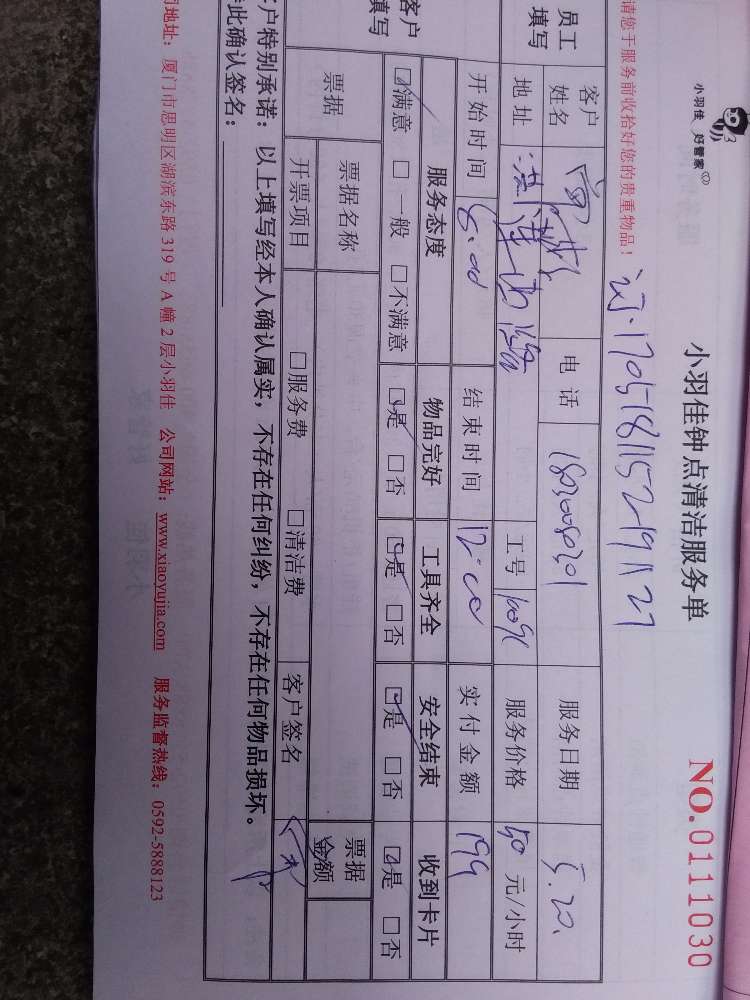 小羽佳 好管家
小羽佳钟点清洁服务单
NO.0111030
请您于服务前收拾好您的贵重物品！
1705181152191127
员工填写
客户姓名 电话 18030080201 服务日期 5.20.
地址 工号 服务价格 50 元/小时
开始时间 8:00 结束时间 12:00 实付金额 199
客户填写
服务态度 物品完好 工具齐全 安全结束 收到卡片
☑满意 □一般 □不满意 ☑是 □否 ☑是 □否 ☑是 □否 ☑是 □否
票据 票据名称 票据金额
开票项目 □服务费 □清洁费 客户签名
客户特别承诺：以上填写经本人确认属实，不存在任何纠纷，不存在任何物品损坏。
此确认签名：
地址：厦门市思明区湖滨东路 319 号 A 幢 2 层小羽佳 公司网站：www.xiaoyujia.com 服务监督热线：0592-5888123